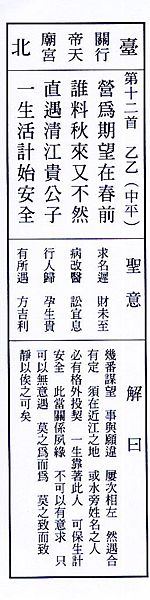 臺北
關帝廟
行天宮
第十二首 乙乙(中平)
營爲期望在春前
誰料秋來又不然
直遇清江貴公子
一生活計始安全
聖意
求名遲 財未至
病改醫 訟宜息
行人歸 孕生貴
有所遇 方吉利
解曰
幾番謀望 事與願違 屢次相左 然遇合
有定 須在近江之地 或水旁姓名之人
必有格外投契 一生靠著此人 可保生計
安全 此當關係夙緣 不可以有意求 只
可以無意遇 莫之爲而爲 莫之致而致
靜以俟之可矣